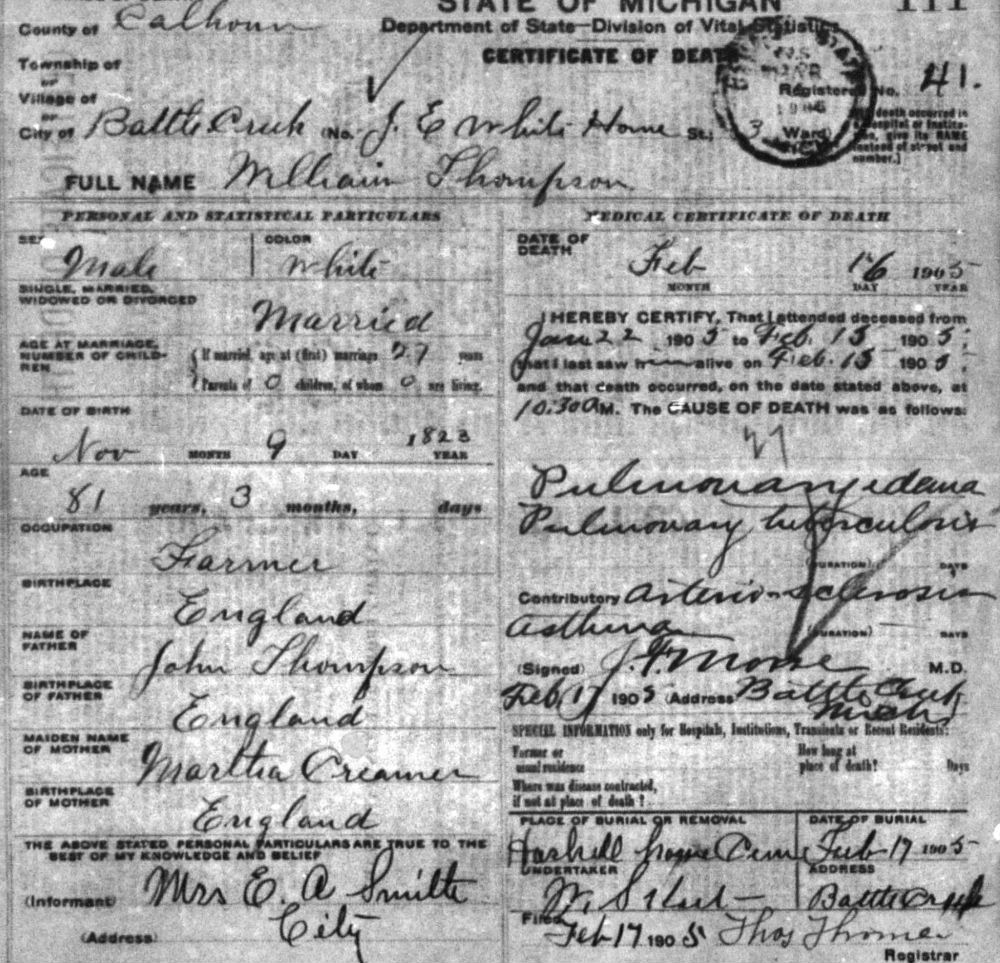 STATE OF MICHIGAN
County of Calhoun
Department of State—Division of Vital Statistics
Township of
CERTIFICATE OF DEATH
or
Village of
Registered No. 41.
or
City of Battle Creek (No. J. E White Home St.; Ward)
[If death occurred in a Hospital or Institution, give its NAME instead of street and number.]
FULL NAME William Thompson
PERSONAL AND STATISTICAL PARTICULARS
SEX Male
COLOR White
SINGLE, MARRIED, WIDOWED OR DIVORCED
Married
AGE AT MARRIAGE, NUMBER OF CHILDREN
If married, age at (first) marriage 27 years
Parents of 0 children, of whom 0 are living.
DATE OF BIRTH
Nov MONTH 9 DAY 1823 YEAR
AGE
81 years, 3 months, days
OCCUPATION
Farmer
BIRTHPLACE
England
NAME OF FATHER
John Thompson
BIRTHPLACE OF FATHER
England
MAIDEN NAME OF MOTHER
Martha Creamer
BIRTHPLACE OF MOTHER
England
THE ABOVE STATED PERSONAL PARTICULARS ARE TRUE TO THE
BEST OF MY KNOWLEDGE AND BELIEF
(Informant) Mrs E. A Smith
(Address) City
MEDICAL CERTIFICATE OF DEATH
DATE OF DEATH
Feb 16 1905
MONTH DAY YEAR
I HEREBY CERTIFY, That I attended deceased from
Jan 22 1905 to Feb. 15 1905;
that I last saw h alive on Feb. 15 1905;
and that death occurred, on the date stated above, at
10.30 a M. The CAUSE OF DEATH was as follows:
27
Pulmonary edema
Pulmonary tuberculosis
(DURATION) DAYS
Contributory Arterio-sclerosis
Asthma
(DURATION) DAYS
(Signed) J. F. Morse M.D.
Feb 17 1905 (Address) Battle Creek
Mich
SPECIAL INFORMATION only for Hospitals, Institutions, Transients or Recent Residents:
Former or usual residence
How long at place of death? Days
Where was disease contracted,
if not at place of death?
PLACE OF BURIAL OR REMOVAL
Haskell Home Cem
DATE OF BURIAL
Feb 17 1905
UNDERTAKER
ADDRESS
Battle Creek
Filed Feb 17 1905 Thos Thorne
Registrar